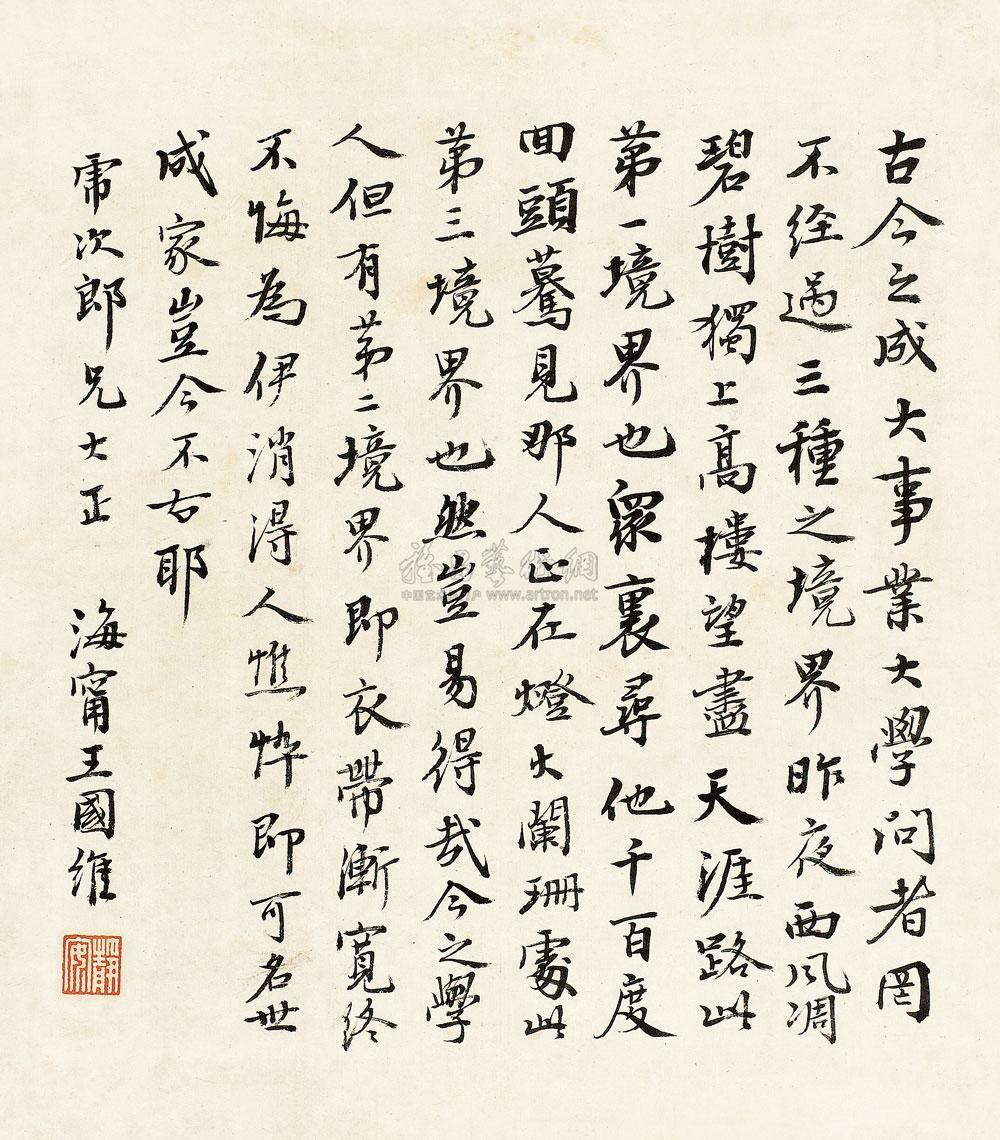 古今之成大事業大學問者罔
不經過三種之境界昨夜西風凋
碧樹獨上高樓望盡天涯路此
第一境界也眾裏尋他千百度
回頭驀見那人正在燈火闌珊處此
第三境界也然豈易得哉今之學
人但有第二境界即衣帶漸寬終
不悔為伊消得人憔悴即可名世
成家豈今不右耶
乕次郎兄大正 海甯王國維
靜安
雅昌藝術網
中国艺术品门户 www.artron.net